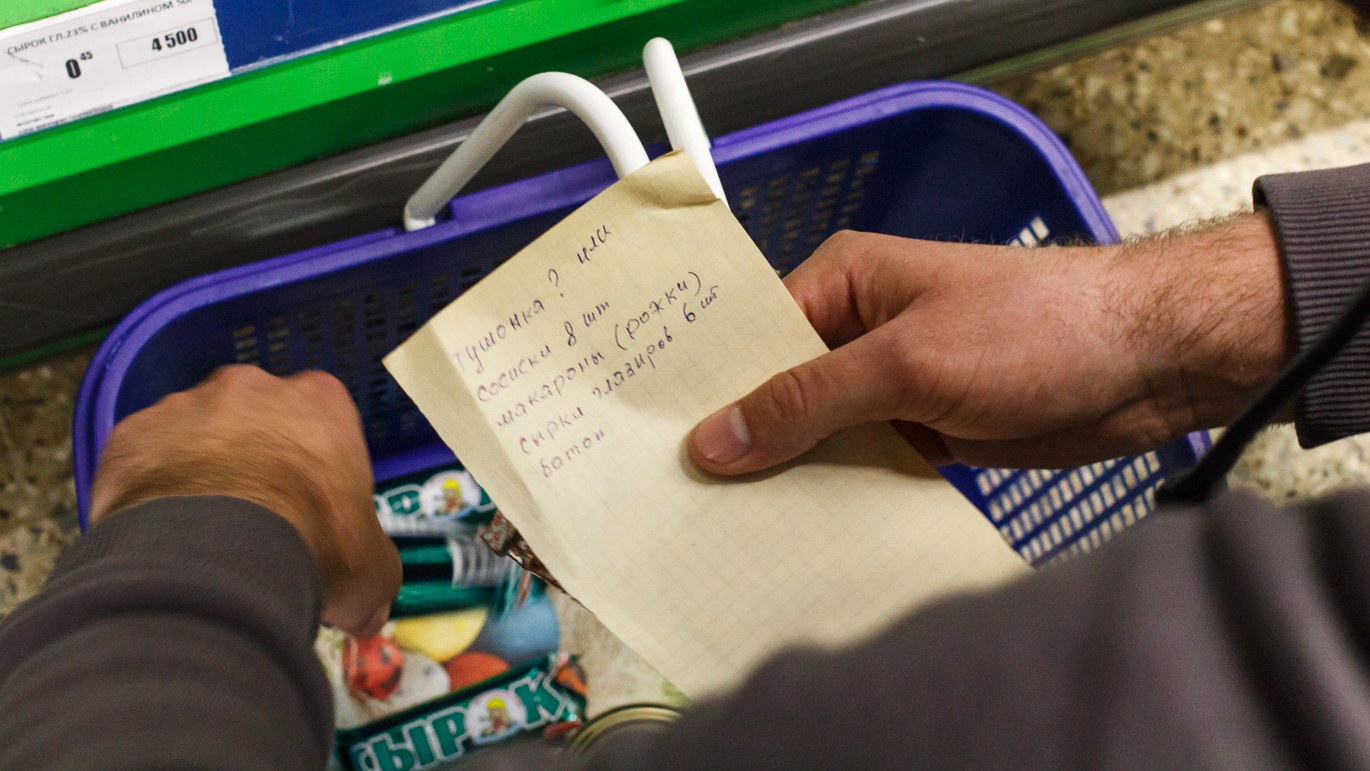 СЫРОК ГЛ.23% С ВАНИЛИНОМ 50Г
0 45
4 500
тушонка? или
сосиски 8 шт
макароны (рожки)
сырки глазиров 6 шт
батон
СЫРОК